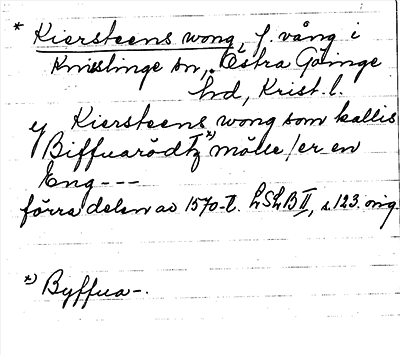 * Kiersteens wong, f. vång i
Knislinge sn, Östra Göinge
hd, Krist. l.
y Kiersteens wong som kallis
Biffuarödtz *) mölle / er en
Eng ---
förra delen av 1570-t. LSLB II, s. 123. orig.
*) Byffua-.